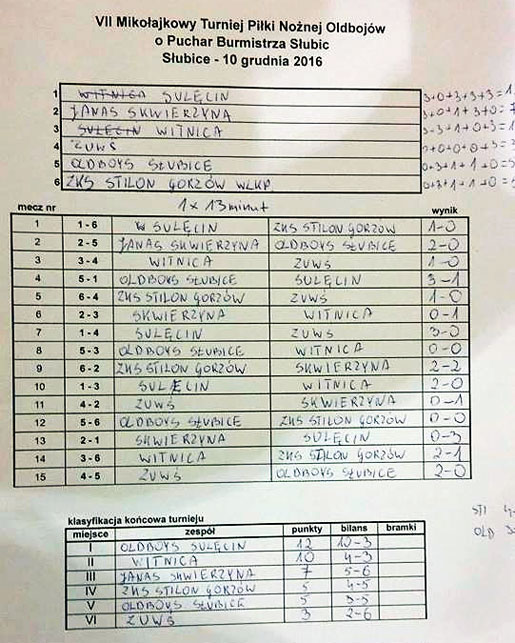 VII Mikołajkowy Turniej Piłki Nożnej Oldbojów
o Puchar Burmistrza Słubic
Słubice - 10 grudnia 2016
1 WITNICA SULĘCIN 3+0+3+3+3=1
2 JANAS SKWIERZYNA 3+0+1+3+0=7
3 SULĘCIN WITNICA 3+3+1+0+3=1
4 ZUWŚ 0+0+0+0+3=3
5 OLDBOYS SŁUBICE 0+3+1+1+0=5
6 ZKS STILON GORZÓW WLKP. 0+3+1+1+0=5
mecz nr 1 x 13 minut wynik
1 1 - 6 W SULĘCIN ZKS STILON GORZÓW 1-0
2 2 - 5 JANAS SKWIERZYNA OLDBOYS SŁUBICE 2-0
3 3 - 4 WITNICA ZUWŚ 1-0
4 5 - 1 OLDBOYS SŁUBICE SULĘCIN 3-1
5 6 - 4 ZKS STILON GORZÓW ZUWŚ 1-0
6 2 - 3 SKWIERZYNA WITNICA 0-1
7 1 - 4 SULĘCIN ZUWŚ 3-0
8 5 - 3 OLDBOYS SŁUBICE WITNICA 0-0
9 6 - 2 ZKS STILON GORZÓW SKWIERZYNA 2-2
10 1 - 3 SULĘCIN WITNICA 2-0
11 4 - 2 ZUWŚ SKWIERZYNA 0-1
12 5 - 6 OLDBOYS SŁUBICE ZKS STILON GORZÓW 0-0
13 2 - 1 SKWIERZYNA SULĘCIN 0-3
14 3 - 6 WITNICA ZKS STILON GORZÓW 2-1
15 4 - 5 ZUWŚ OLDBOYS SŁUBICE 2-0
STI 4-
OLD 3-
klasyfikacja końcowa turnieju
miejsce zespół punkty bilans bramki
I OLDBOYS SULĘCIN 12 10-3
II WITNICA 10 4-3
III JANAS SKWIERZYNA 7 5-6
IV ZKS STILON GORZÓW 5 4-5
V OLDBOYS SŁUBICE 5 3-5
VI ZUWŚ 3 2-6